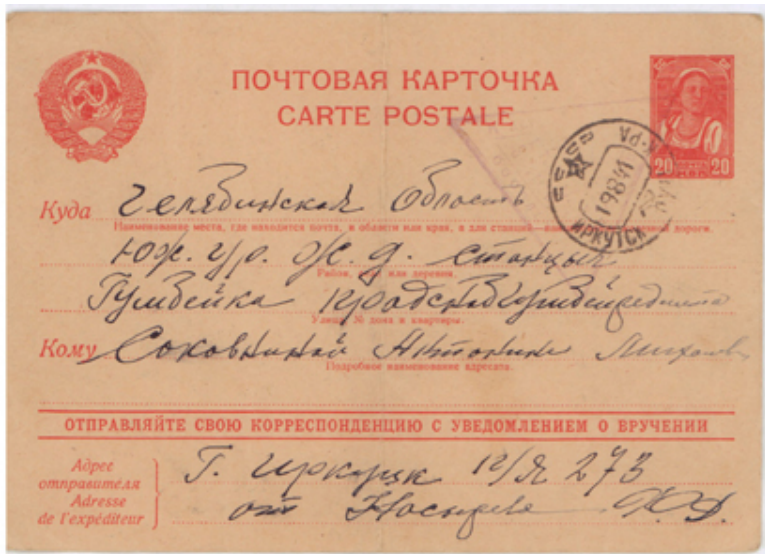 ПОЧТОВАЯ КАРТОЧКА
CARTE POSTALE
20 20
СССР
19 8 41
ИРКУТСК
Куда Челябинская Область
Наименование места, где находится почта, и области или края, а для станций
дороги.
Юж. Ур. Ж. Д. станцыя
Район, село или деревня.
Гумбейка
Улица, № дома и квартиры.
Кому Соковниной Антонине
Подробное наименование адресата.
ОТПРАВЛЯЙТЕ СВОЮ КОРРЕСПОНДЕНЦИЮ С УВЕДОМЛЕНИЕМ О ВРУЧЕНИИ
Адрес
отправителя
Adresse
de l'expéditeur
Г. Иркуцк П/Я 273
от